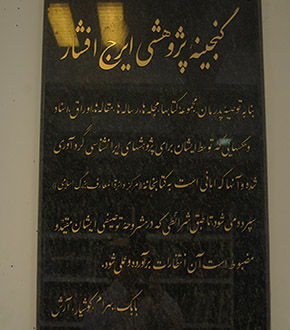 گنجینهٔ پژوهشی ایرج افشار
بنا به توصیهٔ پدرمان مجموعهٔ کتابها، مجله‌ها، رساله‌ها، مقاله‌ها، اوراق، اسناد
و عکسهایی که توسط ایشان برای پژوهشهای ایرانشناسی گردآوری
شده و آنها که امانی است به کتابخانهٔ (مرکز دایرة‌المعارف بزرگ اسلامی)
سپرده می‌شود تا طبق شرائطی که در مشروحهٔ توصیفی ایشان مقید و
مضبوط است آن انتظارات برآورده و عملی شود.
بابک، بهرام، کوشیار، آرش